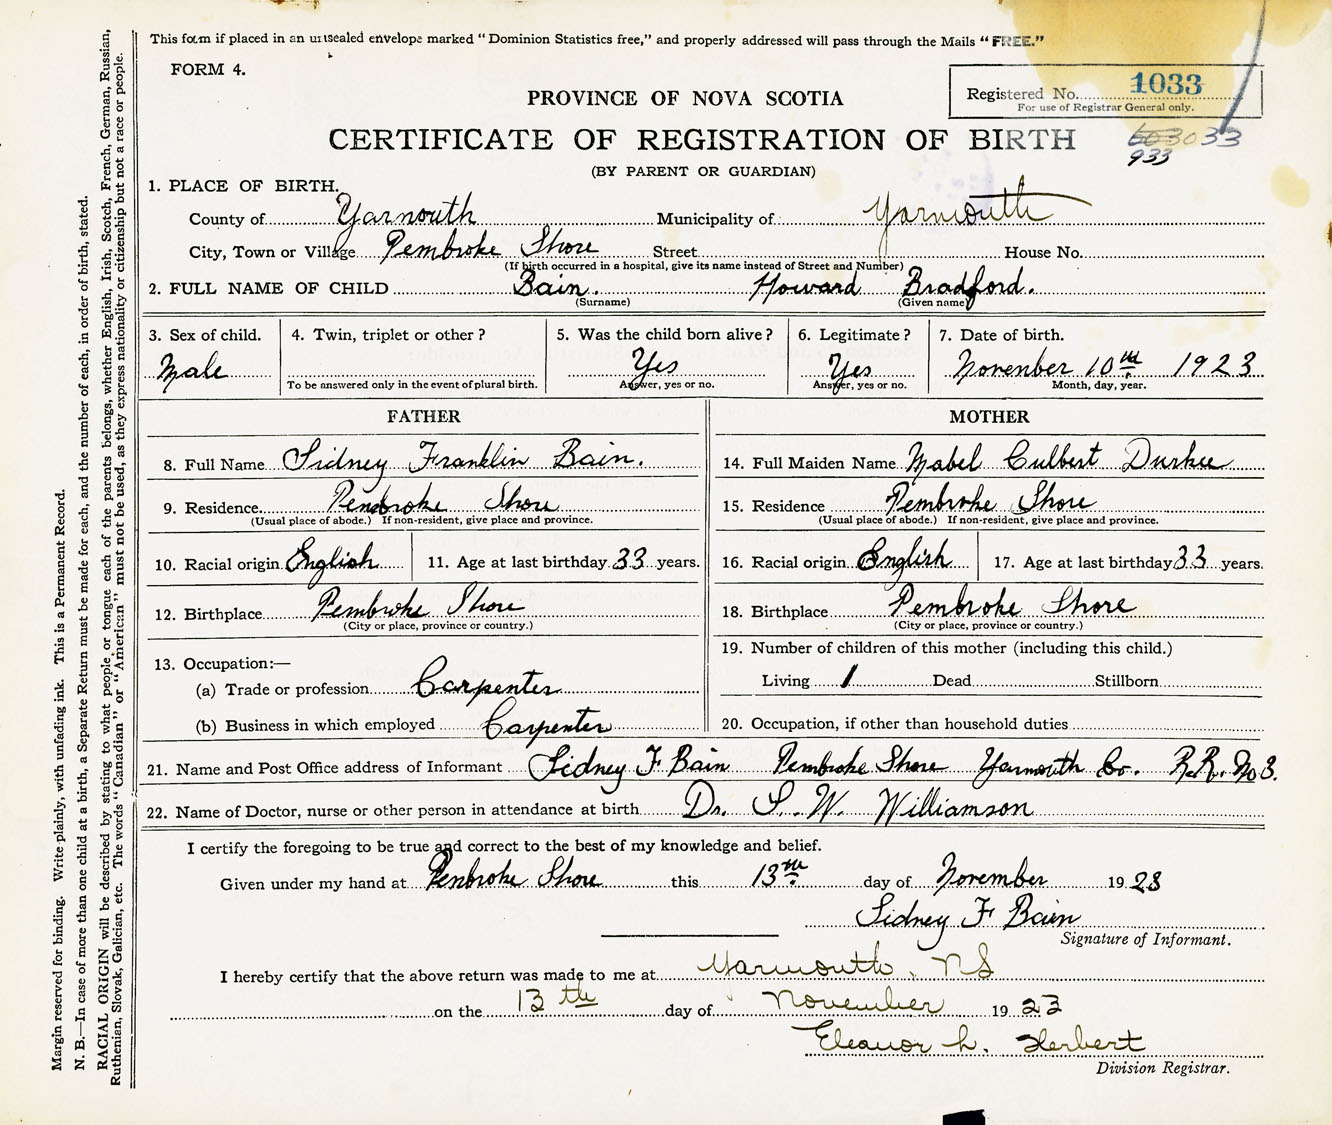 This form if placed in an unsealed envelope marked "Dominion Statistics free," and properly addressed will pass through the Mails "FREE."
FORM 4.
Registered No. 1033
For use of Registrar General only.
PROVINCE OF NOVA SCOTIA
CERTIFICATE OF REGISTRATION OF BIRTH
3033
933
(BY PARENT OR GUARDIAN)
1. PLACE OF BIRTH.
County of Yarmouth Municipality of Yarmouth
City, Town or Village Pembroke Shore Street House No.
(If birth occurred in a hospital, give its name instead of Street and Number)
2. FULL NAME OF CHILD Bain. Howard Bradford.
(Surname) (Given name)
3. Sex of child. 4. Twin, triplet or other? 5. Was the child born alive? 6. Legitimate? 7. Date of birth.
Male Yes Yes November 10th 1923
To be answered only in the event of plural birth. Answer, yes or no. Answer, yes or no. Month, day, year.
FATHER MOTHER
8. Full Name Sidney Franklin Bain. 14. Full Maiden Name Mabel Culbert Durkee
9. Residence. Pembroke Shore 15. Residence Pembroke Shore
(Usual place of abode.) If non-resident, give place and province. (Usual place of abode.) If non-resident, give place and province.
10. Racial origin English 11. Age at last birthday 33 years. 16. Racial origin English 17. Age at last birthday 33 years.
12. Birthplace Pembroke Shore 18. Birthplace Pembroke Shore
(City or place, province or country.) (City or place, province or country.)
13. Occupation:— 19. Number of children of this mother (including this child.)
(a) Trade or profession Carpenter Living 1 Dead Stillborn
(b) Business in which employed Carpenter 20. Occupation, if other than household duties
21. Name and Post Office address of Informant Sidney F Bain Pembroke Shore Yarmouth Co. R.R. No 3.
22. Name of Doctor, nurse or other person in attendance at birth Dr. S. W. Williamson
I certify the foregoing to be true and correct to the best of my knowledge and belief.
Given under my hand at Pembroke Shore this 13th day of November 1923
Sidney F Bain
Signature of Informant.
I hereby certify that the above return was made to me at Yarmouth, NS
on the 13th day of November 1923
Eleanor L. Herbert
Division Registrar.
Margin reserved for binding. Write plainly, with unfading ink. This is a Permanent Record.
N. B.—In case of more than one child at a birth, a Separate Return must be made for each, and the number of each, in order of birth, stated.
RACIAL ORIGIN will be described by stating to what people or tongue each of the parents belongs, whether English, Irish, Scotch, French, German, Russian,
Ruthenian, Slovak, Galician, etc. The words "Canadian" or "American" must not be used, as they express nationality or citizenship but not a race or people.